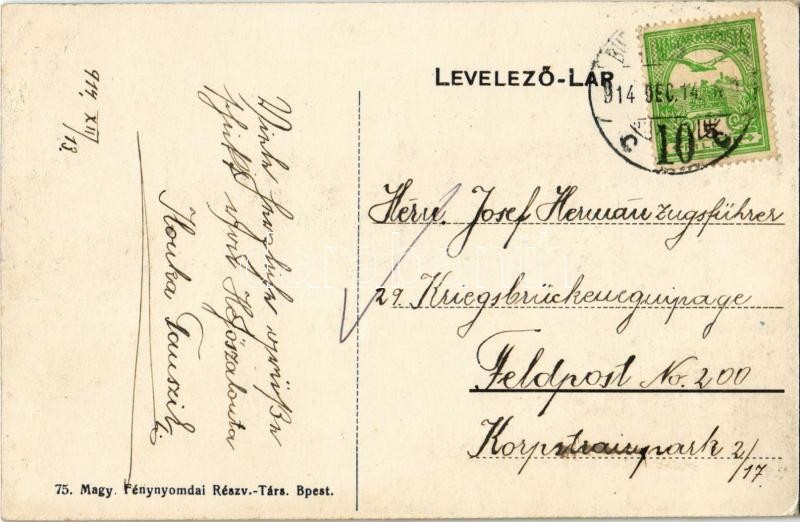 LEVELEZŐ-LAP
914 DEC. 14
MAGYAR KIR. POSTA
10
914 XII/13.
Viele herzliche
schickt Hejőszalonta
Ilonka
Herrn. Josef Herman Zugsführer
29. Kriegsbrückenequipage
Feldpost No. 200
Korpstrainpark 2/17.
75. Magy. Fénynyomdai Részv.-Társ. Bpest.